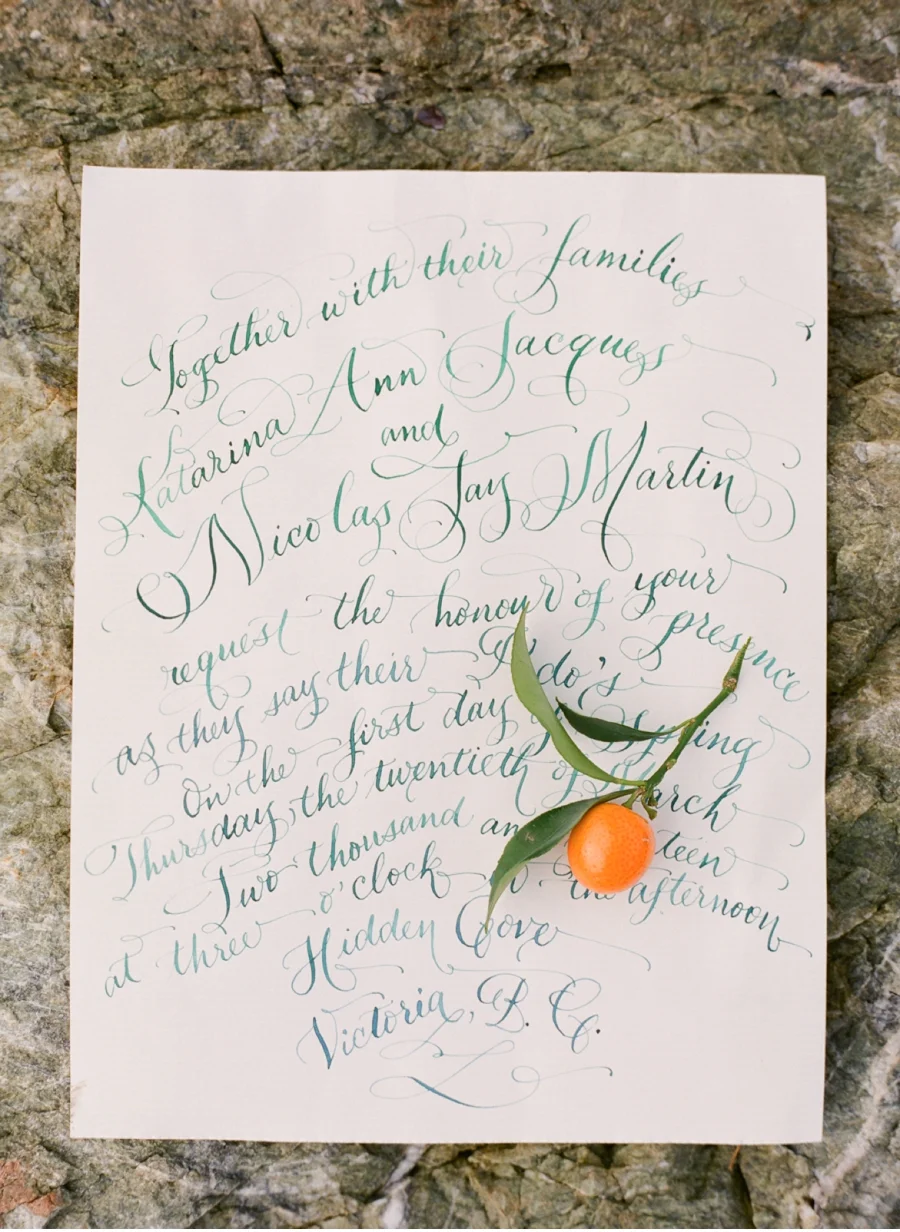 Together with their families
Katarina Ann Jacques
and
Nicolas Jay Martin
request the honour of your presence
as they say their I do's
On the first day of Spring
Thursday, the twentieth of March
Two thousand and teen
at three o'clock in the afternoon
Hidden Cove
Victoria, B. C.